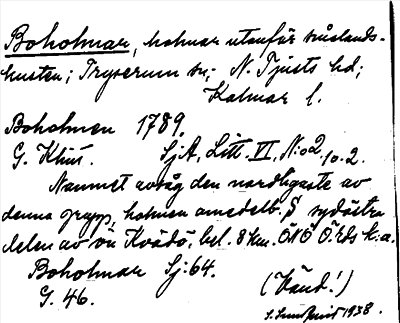 Boholmar, holmar utanför smålands-
kusten; Tryserum sn; N. Tjusts hd;
Kalmar l.
Boholmen 1789.
G. Klint. Sj.A, Litt. VI, N:o 2, 10.2.
Namnet avsåg den nordligaste av
denna grupp, holmen omedelb. S sydöstra
delen av ön Kvädö, bel. 8 km. ÖNÖ Ö. Eds k:a.
Boholmar Sj:64.
G. 46. (Vänd!)
1938.